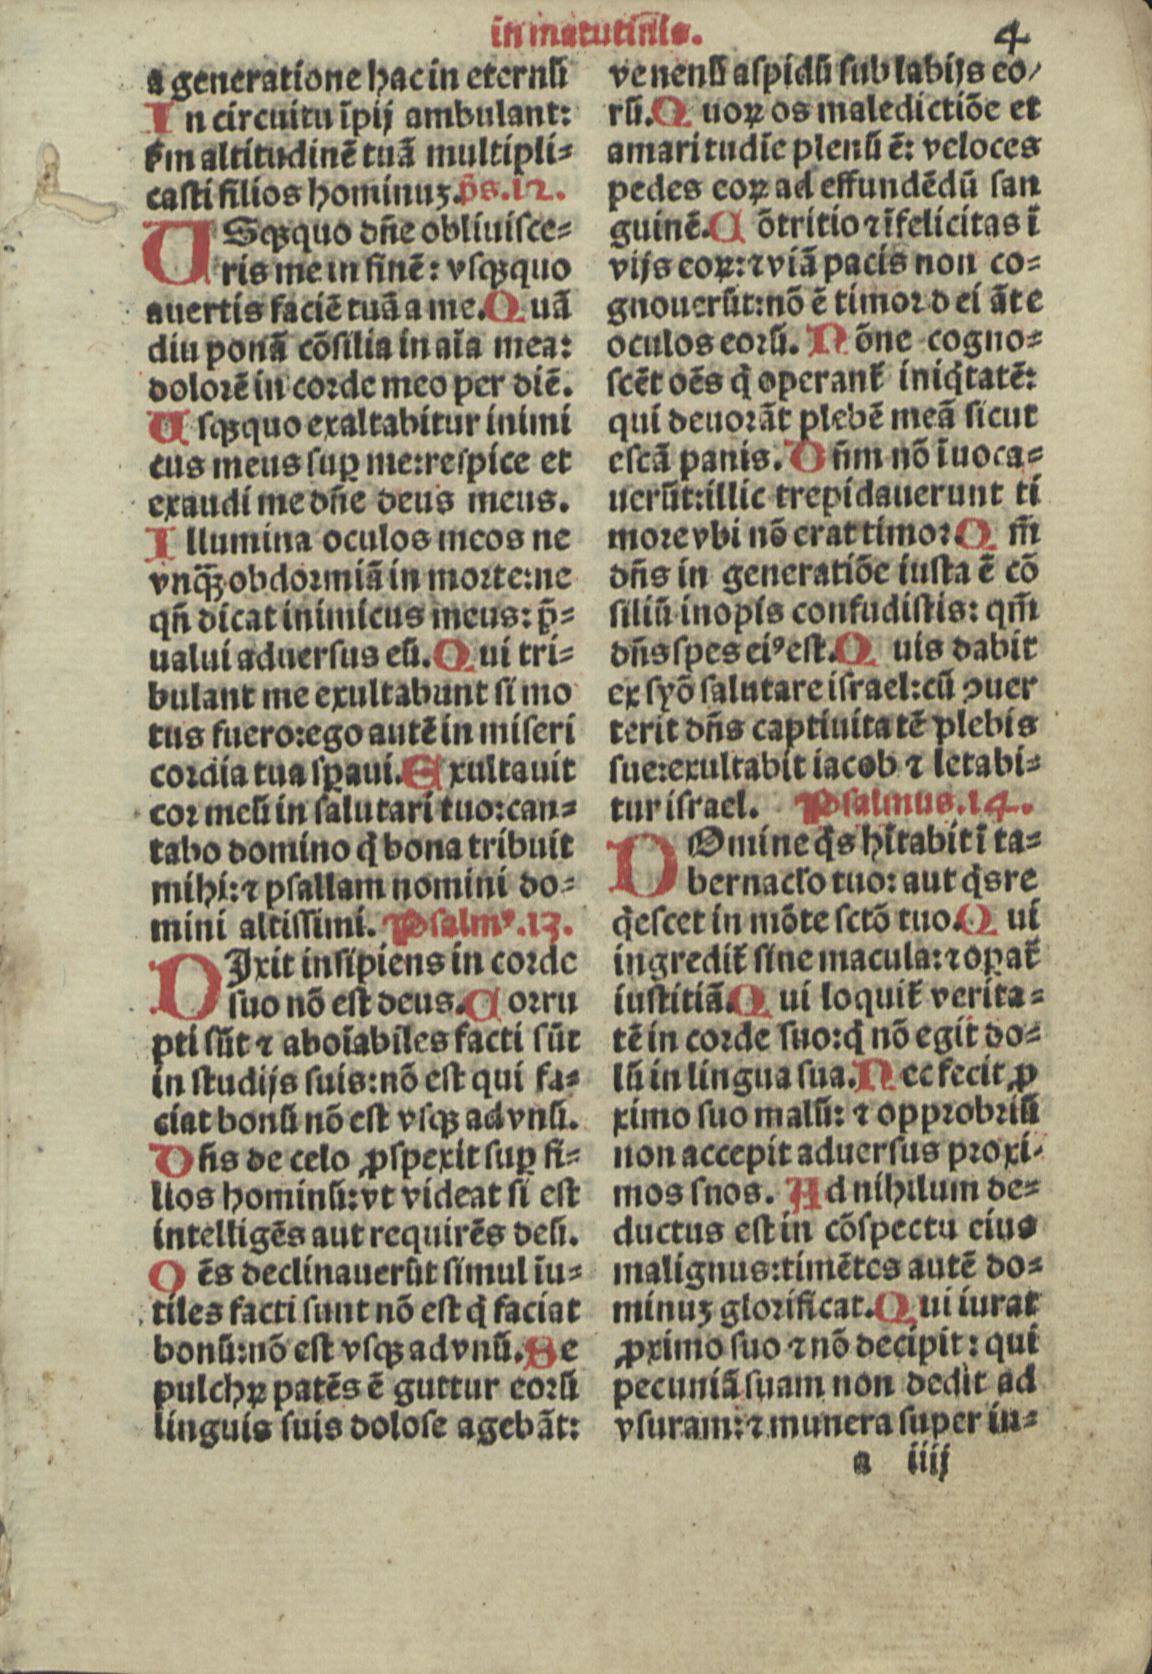 in matutinis.
4
a generatione hac in eternū
In circuitu īpij ambulant:
ẜm altitudinē tuā multipli-
casti filios hominuꝫ. p̄s.12.
USqꝫquo dn̄e obliuisce-
ris me in finē: vsqꝫquo
auertis faciē tuā a me. Quā
diu ponā cōsilia in aīa mea:
dolorē in corde meo per diē.
Usqꝫquo exaltabitur inimi
cus meus suꝑ me: respice et
exaudi me dn̄e deus meus.
Illumina oculos meos ne
vnqꝫ̄ obdormiā in morte: ne
qn̄ dicat inimicus meus: p̄-
ualui aduersus eū. Qui tri-
bulant me exultabunt si mo
tus fuero: ego autē in miseri
cordia tua sꝑaui. Exultauit
cor meū in salutari tuo: can-
tabo domino q̄ bona tribuit
mihi: ⁊ psallam nomini do-
mini altissimi. Psalmꝰ.13.
DIxit insipiens in corde
suo nō est deus. Corru
pti sūt ⁊ aboīabiles facti sūt
in studijs suis: nō est qui fa-
ciat bonū nō est vsqꝫ ad vnū.
Dn̄s de celo ꝓspexit suꝑ fi-
lios hominū: vt videat si est
intelligēs aut requirēs deū.
Oēs declinauerūt simul īu-
tiles facti sunt nō est q̄ faciat
bonū: nō est vsqꝫ ad vnū. Se
pulchꝝ patēs ē guttur eorū
linguis suis dolose agebāt:
venenū aspidū sub labijs eo/
rū. Quoꝝ os maledictiōe et
amaritudīe plenū ē: veloces
pedes eoꝝ ad effundēdū san
guinē. Cōtritio ⁊ īfelicitas ī
vijs eoꝝ: ⁊ viā pacis non co-
gnouerūt: nō ē timor dei āte
oculos eorū. Nōne cogno-
scēt oēs q̄ operant᷑ iniq̄tatē:
qui deuorāt plebē meā sicut
escā panis. Dn̄m nō īuoca-
uerūt: illic trepidauerunt ti
more vbi nō erat timor. Qm̄
dn̄s in generatiōe iusta ē cō
siliū inopis confudistis: qm̄
dn̄s spes eiꝰ est. Quis dabit
ex syō salutare israel: cū ꝯuer
terit dn̄s captiuitatē plebis
sue: exultabit iacob ⁊ letabi-
tur israel. Psalmus.14.
DOmine q̄s hītabit ī ta-
bernac̄lo tuo: aut q̄s re
q̄escet in mōte sctō tuo. Qui
ingredit᷑ sine macula: ⁊ oꝑat᷑
iustitiā. Qui loquit᷑ verita-
tē in corde suo: q̄ nō egit do-
lū in lingua sua. Nec fecit ꝓ
ximo suo malū: ⁊ opprobriū
non accepit aduersus proxi-
mos snos. Ad nihilum de-
ductus est in cōspectu eius
malignus: timētes autē do-
minuꝫ glorificat. Qui iurat
ꝓximo suo ⁊ nō decipit: qui
pecuniā suam non dedit ad
vsuram: ⁊ munera super in-
a iiij